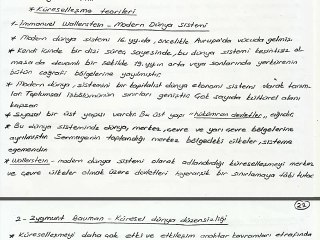 * Küreselleşme teorileri
1- Immanuel Wallerstein - Modern Dünya Sistemi
* Modern dünya sistemi 16. yy.da, öncelikle Avrupa'da vücuda gelmiş
* Kendi içinde bir dizi süreç sayesinde, bu dünya sistemi kesintisiz ol-
masa da devamlı bir şekilde 19. yy.ın orta veya sonlarında yerkürenin
bütün coğrafi bölgelerine yayılmıştır.
* Modern dünya, sistemini bir kapitalist dünya ekonomi sistemi olarak tanım-
lar. Toplumsal işbölümünün sınırları geniştir. Çok sayıda kültürel alanı
kapsar.
* Siyasal bir üst yapısı vardır. Bu üst yapı "hükümran devletler" ağıdır.
* Bu dünya sisteminde dünya, merkez, çevre ve yarı çevre bölgelerine
ayrılmıştır. Sermayenin toplandığı merkez bölgedeki ülkeler, sisteme
egemendir.
* Wallerstein - modern dünya sistemi olarak adlandırdığı küreselleşmeyi merkez
ve çevre ülkeler olmak üzere devletleri hiyerarşik bir sınırlamaya tâbi tutar.
22
2- Zygmunt Bauman - Küresel dünya düzensizliği
* Küreselleşmeyi daha çok etki ve etkileşim anahtar kavramları etrafında